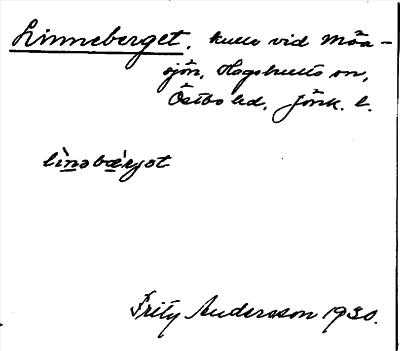 Linneberget, kulle vid Möa-
sjön, Hagshults sn,
Östbo hd, Jönk. l.
lìnəbæ̀rjət
Fritz Andersson 1930.